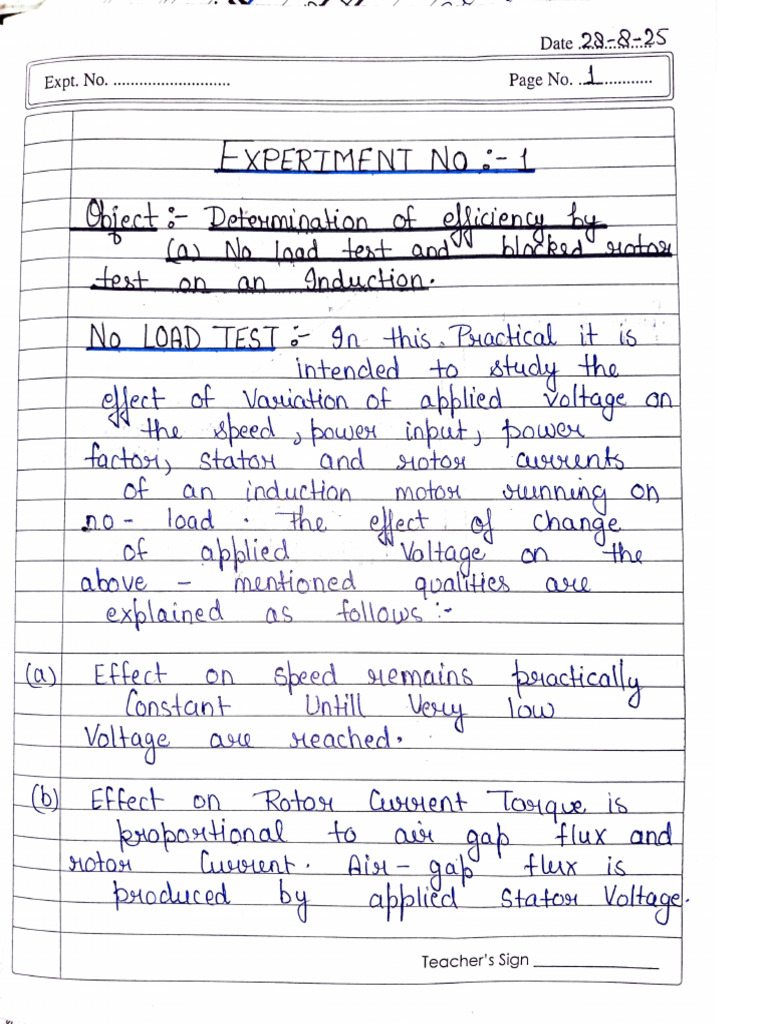 Date 28-8-25
Expt. No. ............................
Page No. ..1............
EXPERIMENT NO :- 1
Object :- Determination of efficiency by
(a) No load test and blocked rotor
test on an Induction.
NO LOAD TEST :- In this Practical it is
intended to study the
effect of Variation of applied Voltage on
the speed, power input, power
factor, stator and rotor currents
of an induction motor running on
no - load. The effect of change
of applied Voltage on the
above - mentioned qualities are
explained as follows :-
(a) Effect on speed remains practically
Constant Untill Very low
Voltage are reached.
(b) Effect on Rotor Current Torque is
proportional to air gap flux and
rotor Current. Air - gap flux is
produced by applied Stator Voltage.
Teacher's Sign ______________